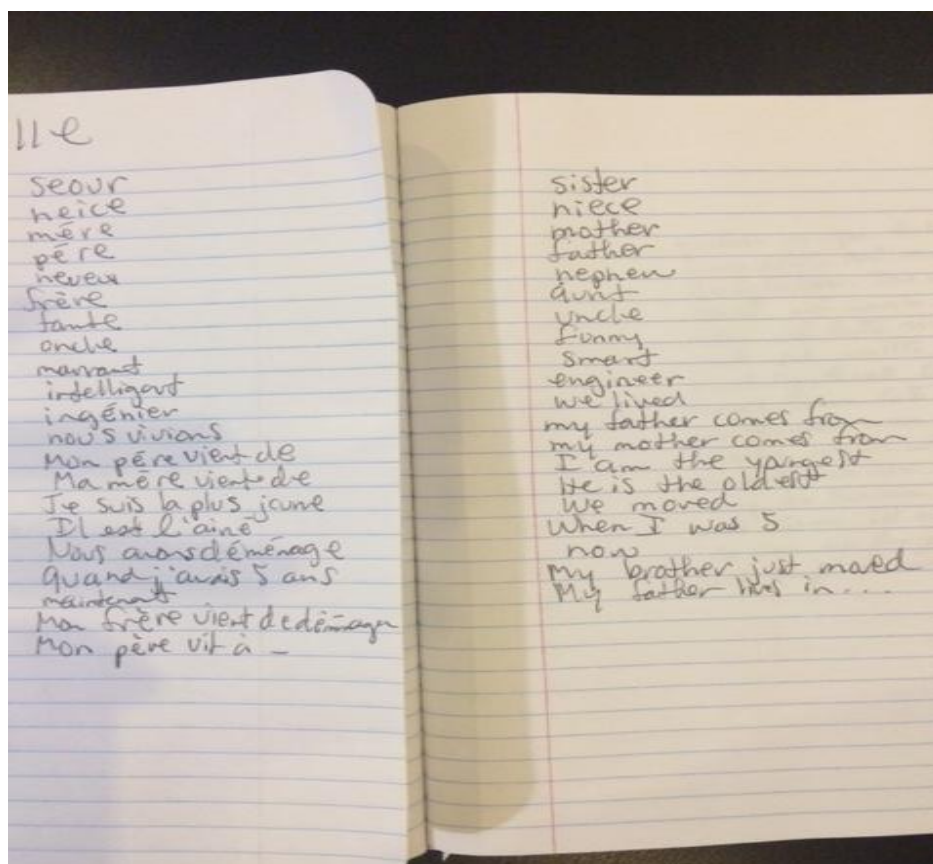 lle
seour
neice
mère
père
neveux
frère
tante
oncle
marrant
intelligent
ingénier
nous vivions
Mon père vient de
Ma mère vient de
Je suis la plus jeune
Il est l'ainé
Nous avons déménage
Quand j'avais 5 ans
maintenant
Mon frère vient de déménager
Mon père vit à _
sister
niece
mother
father
nephew
aunt
uncle
funny
smart
engineer
we lived
my father comes from
my mother comes from
I am the youngest
He is the oldest
We moved
When I was 5
now
My brother just moved
My father lives in ...